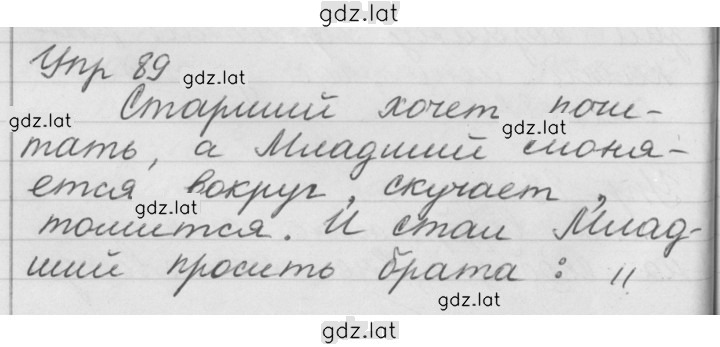 gdz.lat
Упр 89
gdz.lat
Старший хочет почи-
gdz.lat
gdz.lat
тать, а Младший слоня-
ется вокруг, скучает,
gdz.lat
томится. И стал Млад-
ший просить брата: "
gdz.lat
gdz.lat